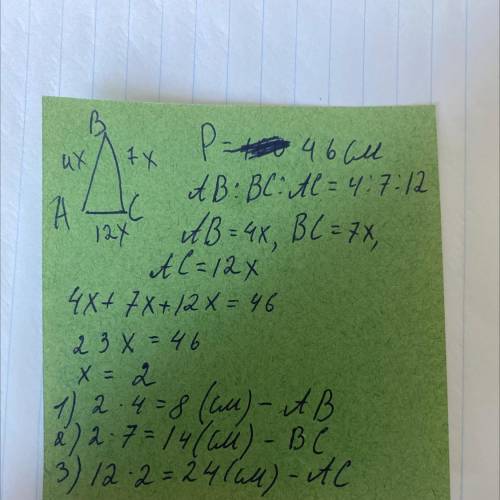 B
4x 7x
A C
12x
P = 46 см
AB : BC : AC = 4 : 7 : 12
AB = 4x, BC = 7x,
AC = 12x
4x + 7x + 12x = 46
23x = 46
x = 2
1) 2 · 4 = 8 (см) - AB
2) 2 · 7 = 14 (см) - BC
3) 12 · 2 = 24 (см) - AC